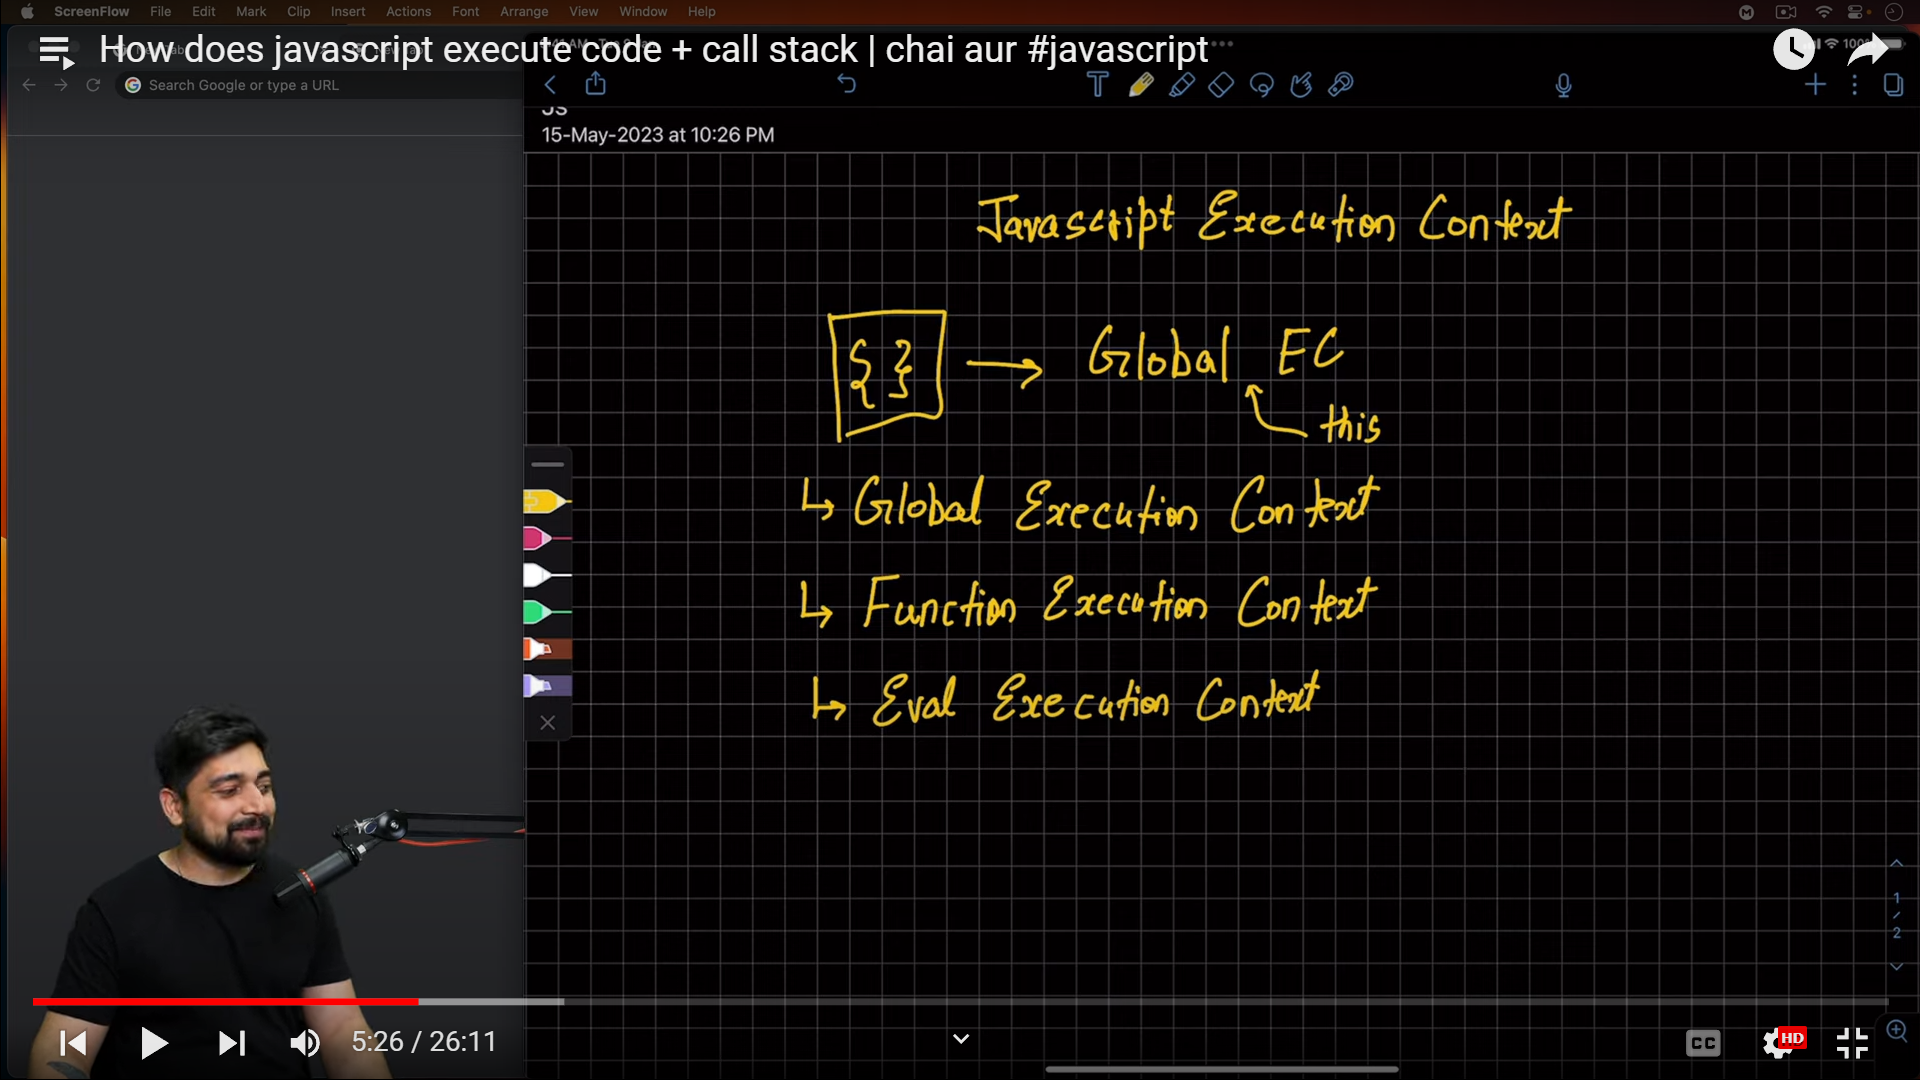 ScreenFlow File Edit Mark Clip Insert Actions Font Arrange View Window Help
How does javascript execute code + call stack | chai aur #javascript
100%
Search Google or type a URL
JS
15-May-2023 at 10:26 PM
Javascript Execution Context
{ } → Global EC
this
↳ Global Execution Context
↳ Function Execution Context
↳ Eval Execution Context
1
/
2
5:26 / 26:11
CC
HD